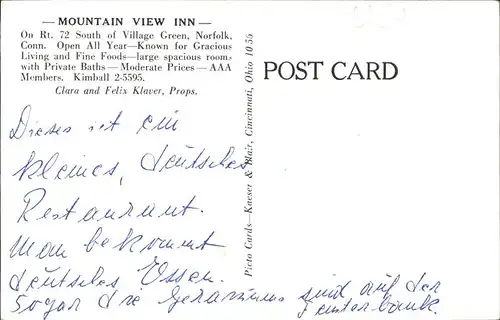 — MOUNTAIN VIEW INN —
On Rt. 72 South of Village Green, Norfolk,
Conn. Open All Year—Known for Gracious
Living and Fine Foods—large spacious rooms
with Private Baths—Moderate Prices—AAA
Members. Kimball 2-5595.
Clara and Felix Klaver, Props.
Dieses ist ein
kleines, deutsches
Restaurant.
Man bekommt
deutsches Essen.
Sogar die Geraniums sind auf der
Fensterbank.
Picto Cards—Kaeser & Blair, Cincinnati, Ohio 10 55
POST CARD